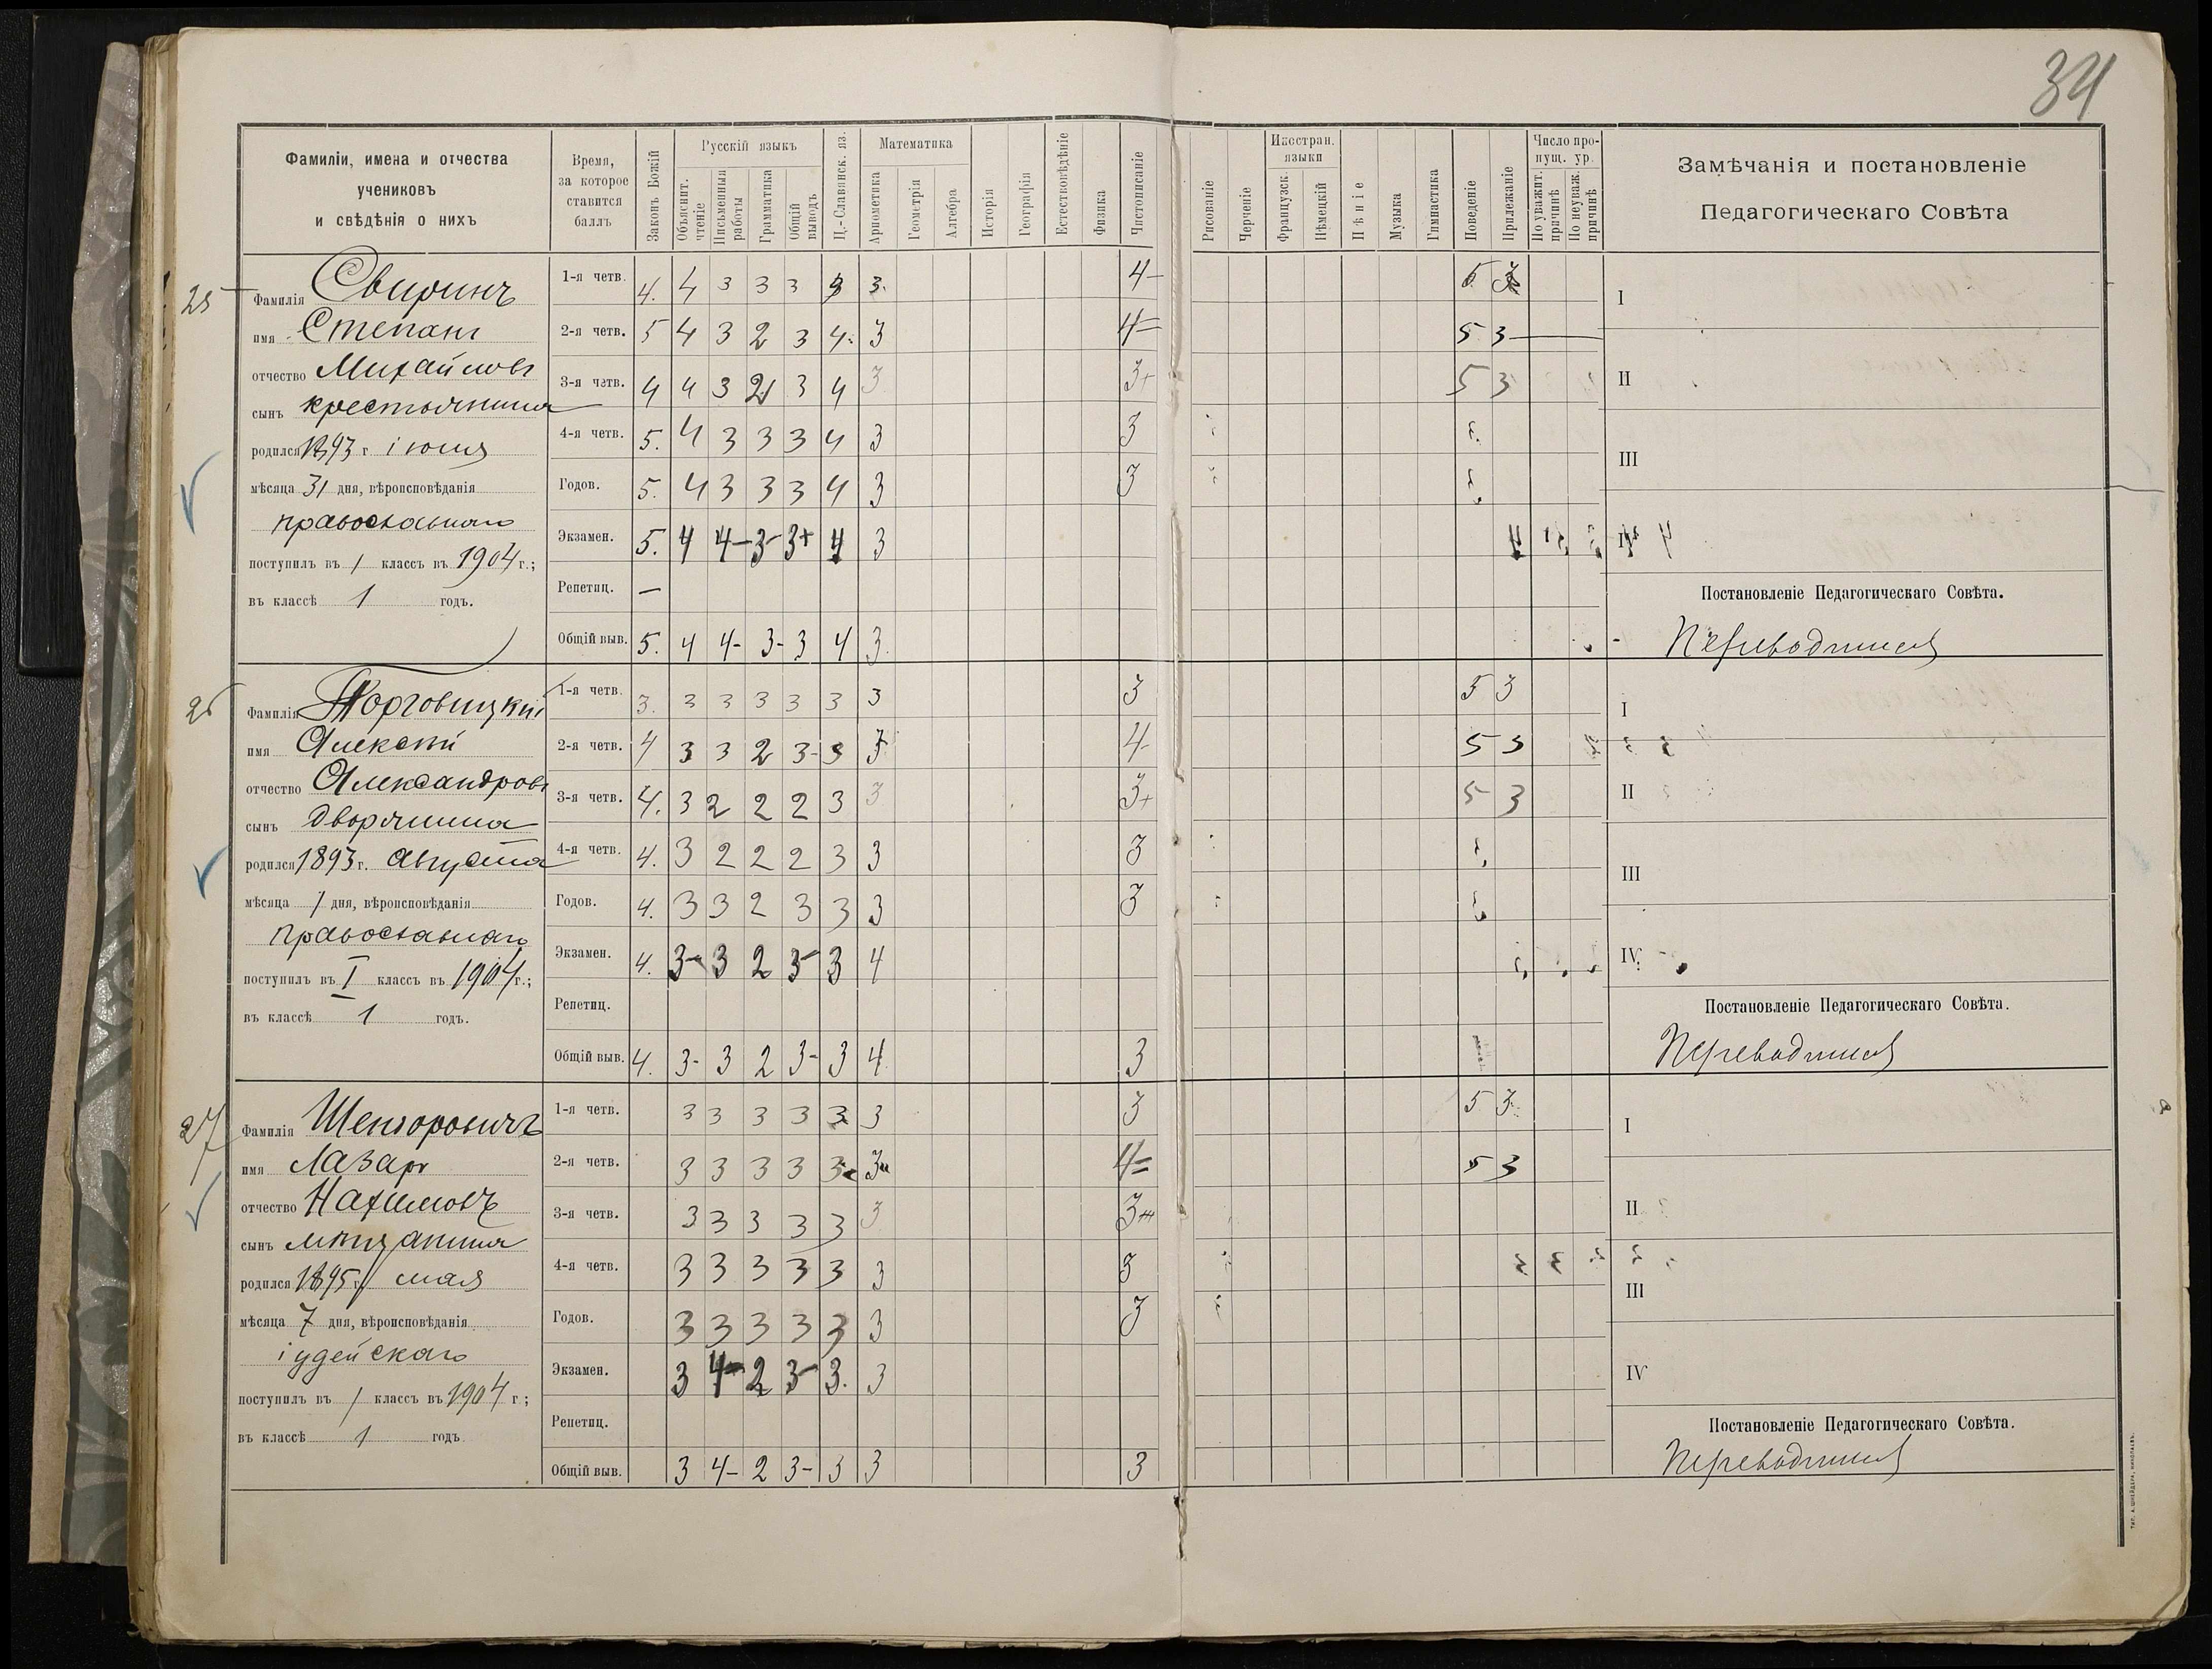 34
Фамиліи, имена и отчества
учениковъ
и свѣдѣнія о нихъ
Время,
за которое
ставится
баллъ
Законъ Божій
Русскій языкъ
Объяснит. чтеніе
Письменныя работы
Грамматика
Общій выводъ
Ц.-Славянск. яз.
Математика
Ариѳметика
Геометрія
Алгебра
Исторія
Географія
Естествовѣдѣніе
Физика
Чистописаніе
Рисованіе
Черченіе
Иностран. языки
Французск.
Нѣмецкій
Пѣніе
Музыка
Гимнастика
Поведеніе
Прилежаніе
Число пропущ. ур.
По уважит. причинѣ
По неуваж. причинѣ
Замѣчанія и постановленіе
Педагогическаго Совѣта
25
Фамилія Свиринъ
имя Степанъ
отчество Михайловъ
сынъ крестьянина
родился 1893 г. іюля
мѣсяца 31 дня, вѣроисповѣданія
православнаго
поступилъ въ 1 классъ въ 1904 г.;
въ классѣ 1 годъ.
1-я четв. 4. 4 3 3 3 3 3. 4- 5 3
2-я четв. 5 4 3 2 3 4- 3 4= 5 3
3-я четв. 4 4 3 2 3 4 3 3+ 5 3
4-я четв. 5. 4 3 3 3 4 3 3
Годов. 5. 4 3 3 3 4 3 3
Экзамен. 5. 4 4- 3- 3+ 4 3
Репетиц. —
Общій выв. 5. 4 4- 3- 3 4 3
I
II
III
IV
Постановленіе Педагогическаго Совѣта.
Переводится
26
Фамилія Торговицкій
имя Алексѣй
отчество Александровъ
сынъ дворянина
родился 1893 г. Августа
мѣсяца 1 дня, вѣроисповѣданія
православнаго
поступилъ въ I классъ въ 1904 г.;
въ классѣ 1 годъ.
1-я четв. 3. 3 3 3 3 3 3 3 5 3
2-я четв. 4 3 3 2 3- 3 3 4- 5 3
3-я четв. 4. 3 2 2 2 3 3 3+ 5 3
4-я четв. 4. 3 2 2 2 3 3 3
Годов. 4. 3 3 2 3 3 3 3
Экзамен. 4. 3- 3 2 3- 3 4
Репетиц.
Общій выв. 4. 3- 3 2 3- 3 4 3
I
II
III
IV
Постановленіе Педагогическаго Совѣта.
Переводится
27
Фамилія
имя Лазарь
отчество Нахимовъ
сынъ мѣщанина
родился 1895 г. мая
мѣсяца 7 дня, вѣроисповѣданія
іудейскаго
поступилъ въ 1 классъ въ 1904 г.;
въ классѣ 1 годъ
1-я четв. 3 3 3 3 3 3 3 5 3
2-я четв. 3 3 3 3 3- 3 4= 5 3
3-я четв. 3 3 3 3 3 3 3+
4-я четв. 3 3 3 3 3 3 3
Годов. 3 3 3 3 3 3 3
Экзамен. 3 4- 2 3- 3. 3
Репетиц.
Общій выв. 3 4- 2 3- 3 3 3
I
II
III
IV
Постановленіе Педагогическаго Совѣта.
Переводится